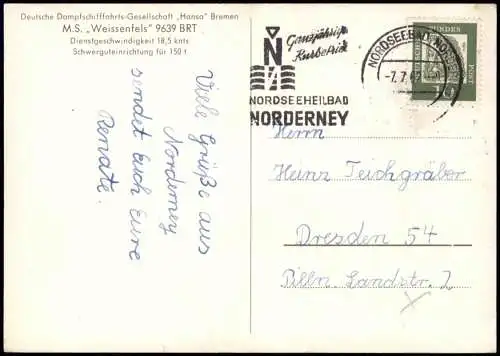 Deutsche Dampfschifffahrts-Gesellschaft „Hansa" Bremen
M.S. „Weissenfels" 9639 BRT
Dienstgeschwindigkeit 18,5 knts
Schwerguteinrichtung für 150 t
Viele Grüße aus
Norderney
sendet Euch Eure
Renate.
Ganzjährig
Kurbetrieb
N
NORDSEEHEILBAD
NORDERNEY
NORDSEEBAD NORDERNEY
-7.7.
DEUTSCHE
BUNDES
POST
Herrn
Heinz Teichgräber
Dresden 54
Pilln. Landstr. 2